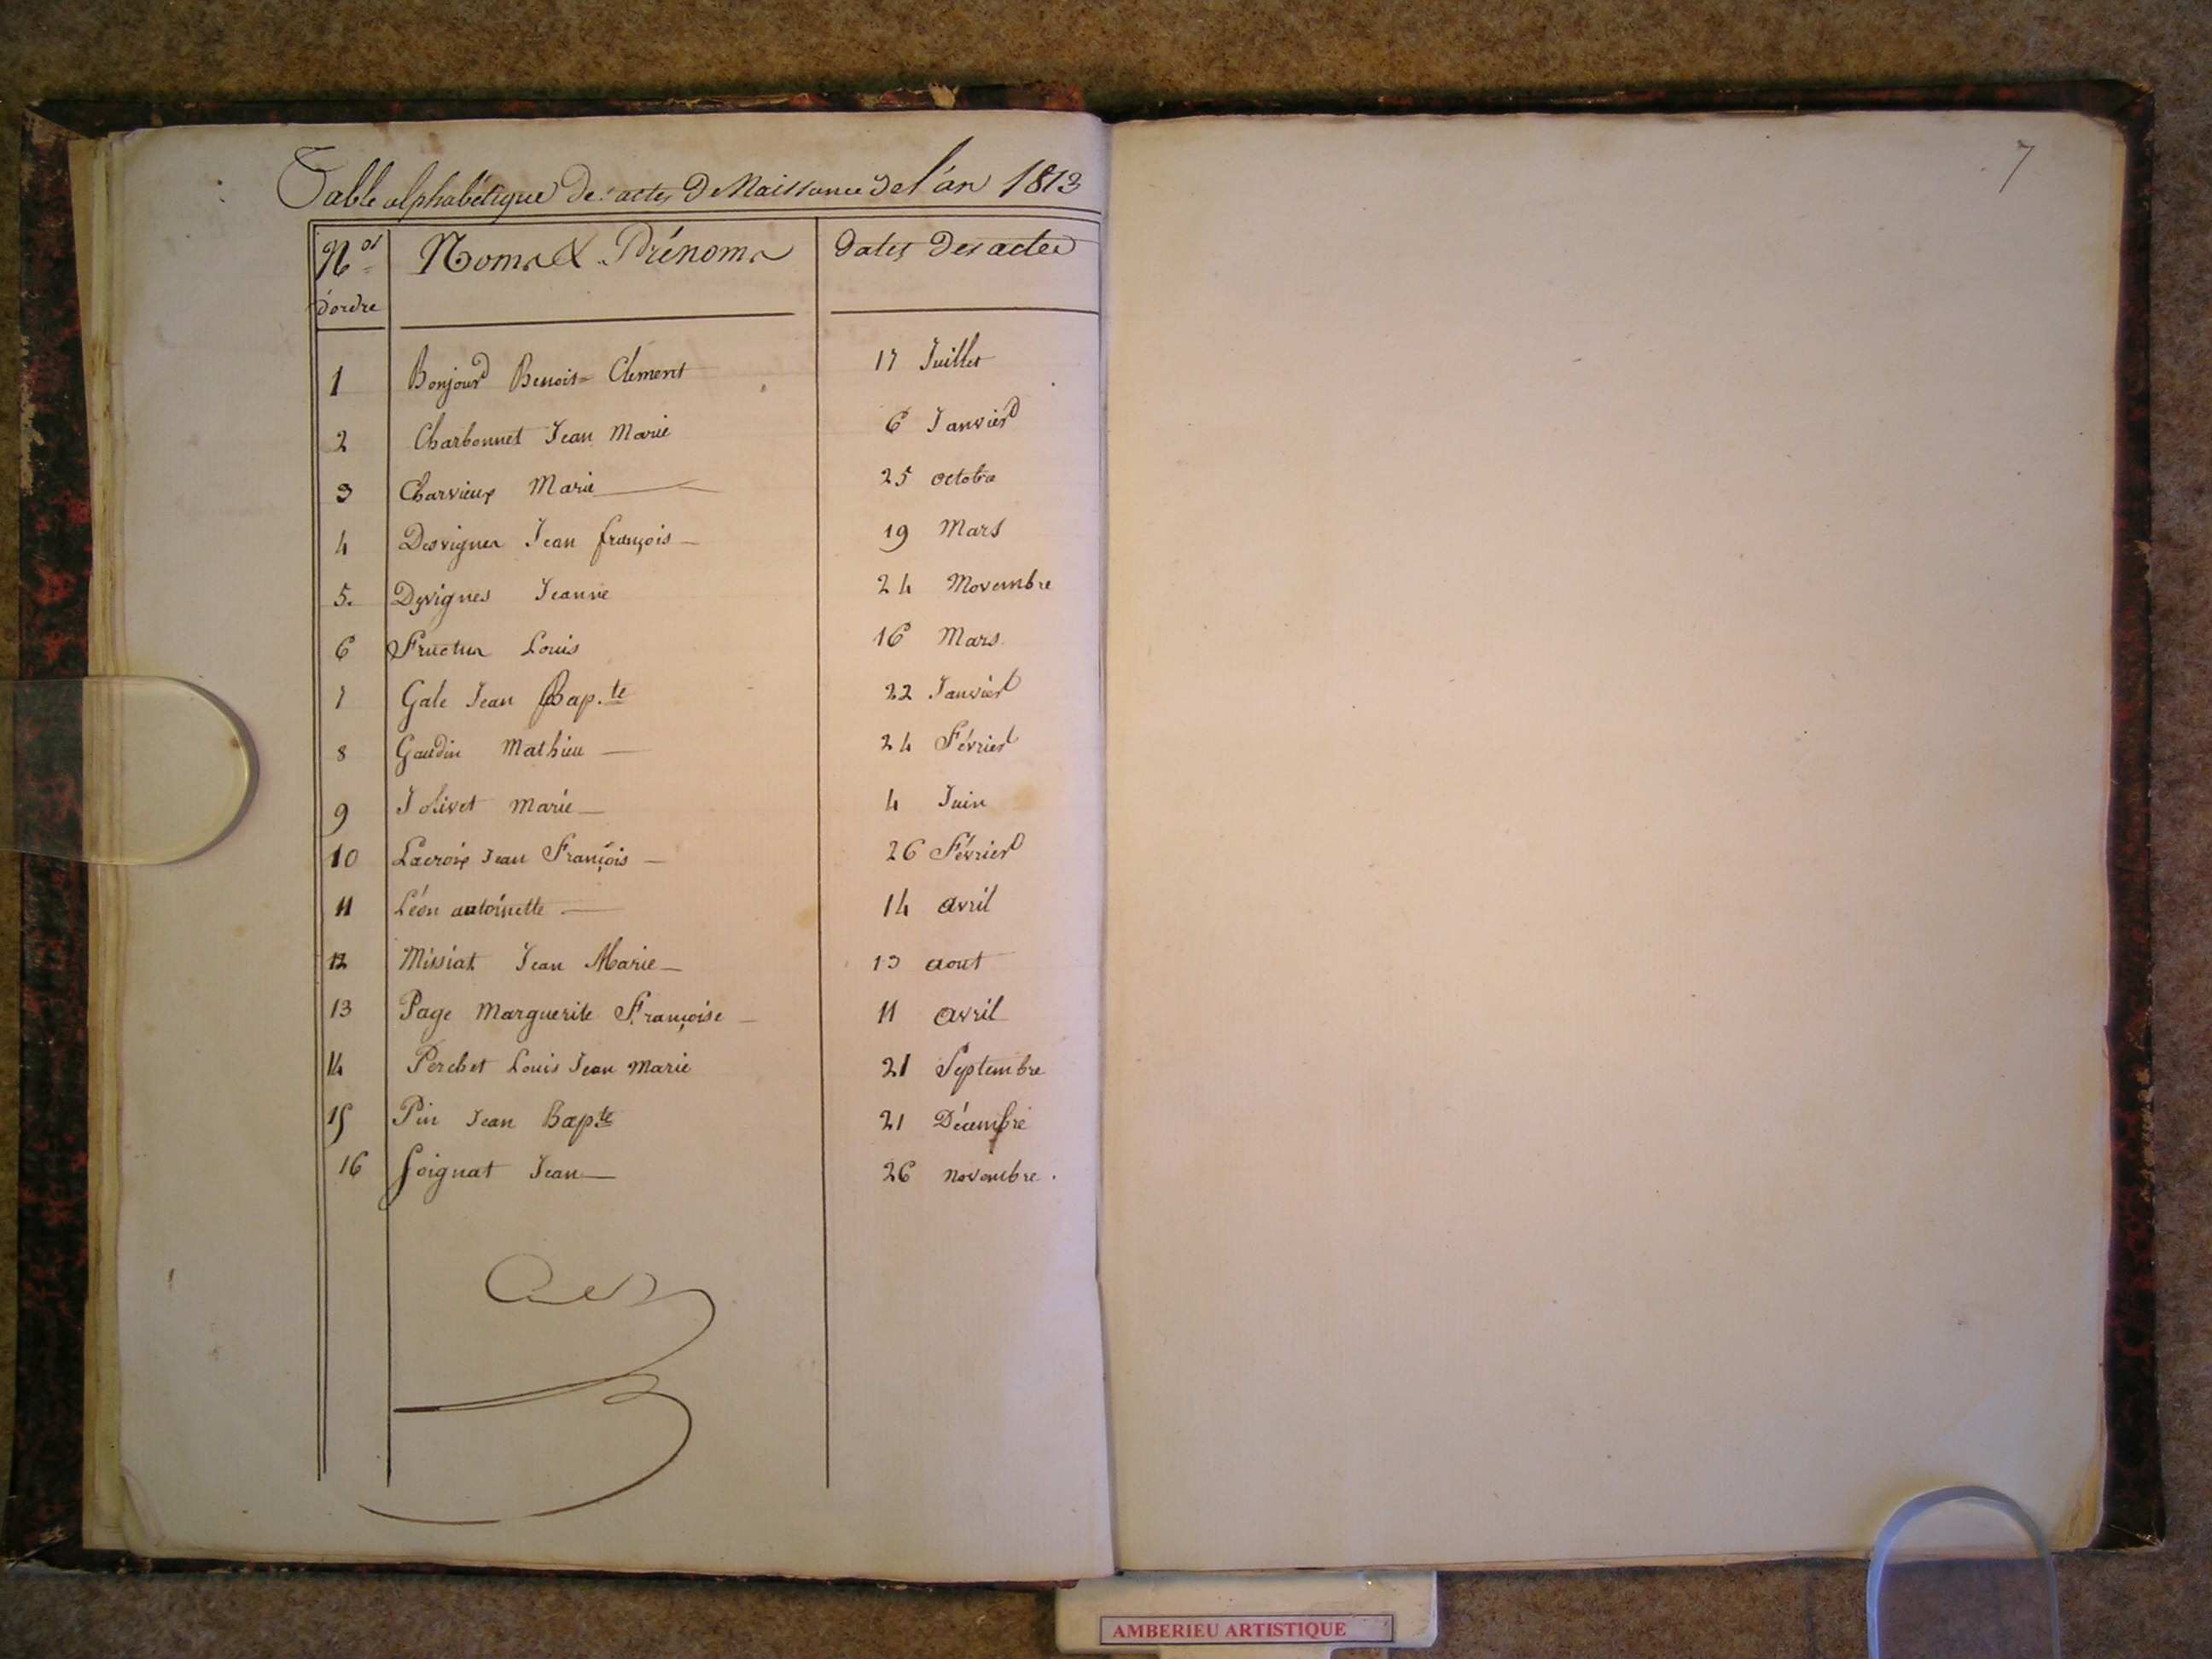 Table alphabétique des actes de Naissance de l'an 1813
Nos Noms & Prénoms dates des actes
d'ordre
1 Bonjour Benoit Clement 17 Juillet
2 Charbonnet Jean Marie 6 Janvier
3 Charvieux Marie 25 octobre
4 Desvignes Jean françois 19 Mars
5. Desvignes Jeanne 24 Novembre
6 Fructus Louis 16 Mars
7 Gale Jean Bap.te 22 Janvier
8 Gaudin Mathieu 24 Février
9 Jolivet Marie 4 Juin
10 Lacroix Jean François 26 Février
11 Léon antoinette 14 avril
12 Missiat Jean Marie 13 aout
13 Page Marguerite Françoise 11 avril
14 Perchet Louis Jean Marie 21 Septembre
15 Pin Jean Bapte 21 Décembre
16 Soignat Jean 26 novembre.
7
AMBERIEU ARTISTIQUE